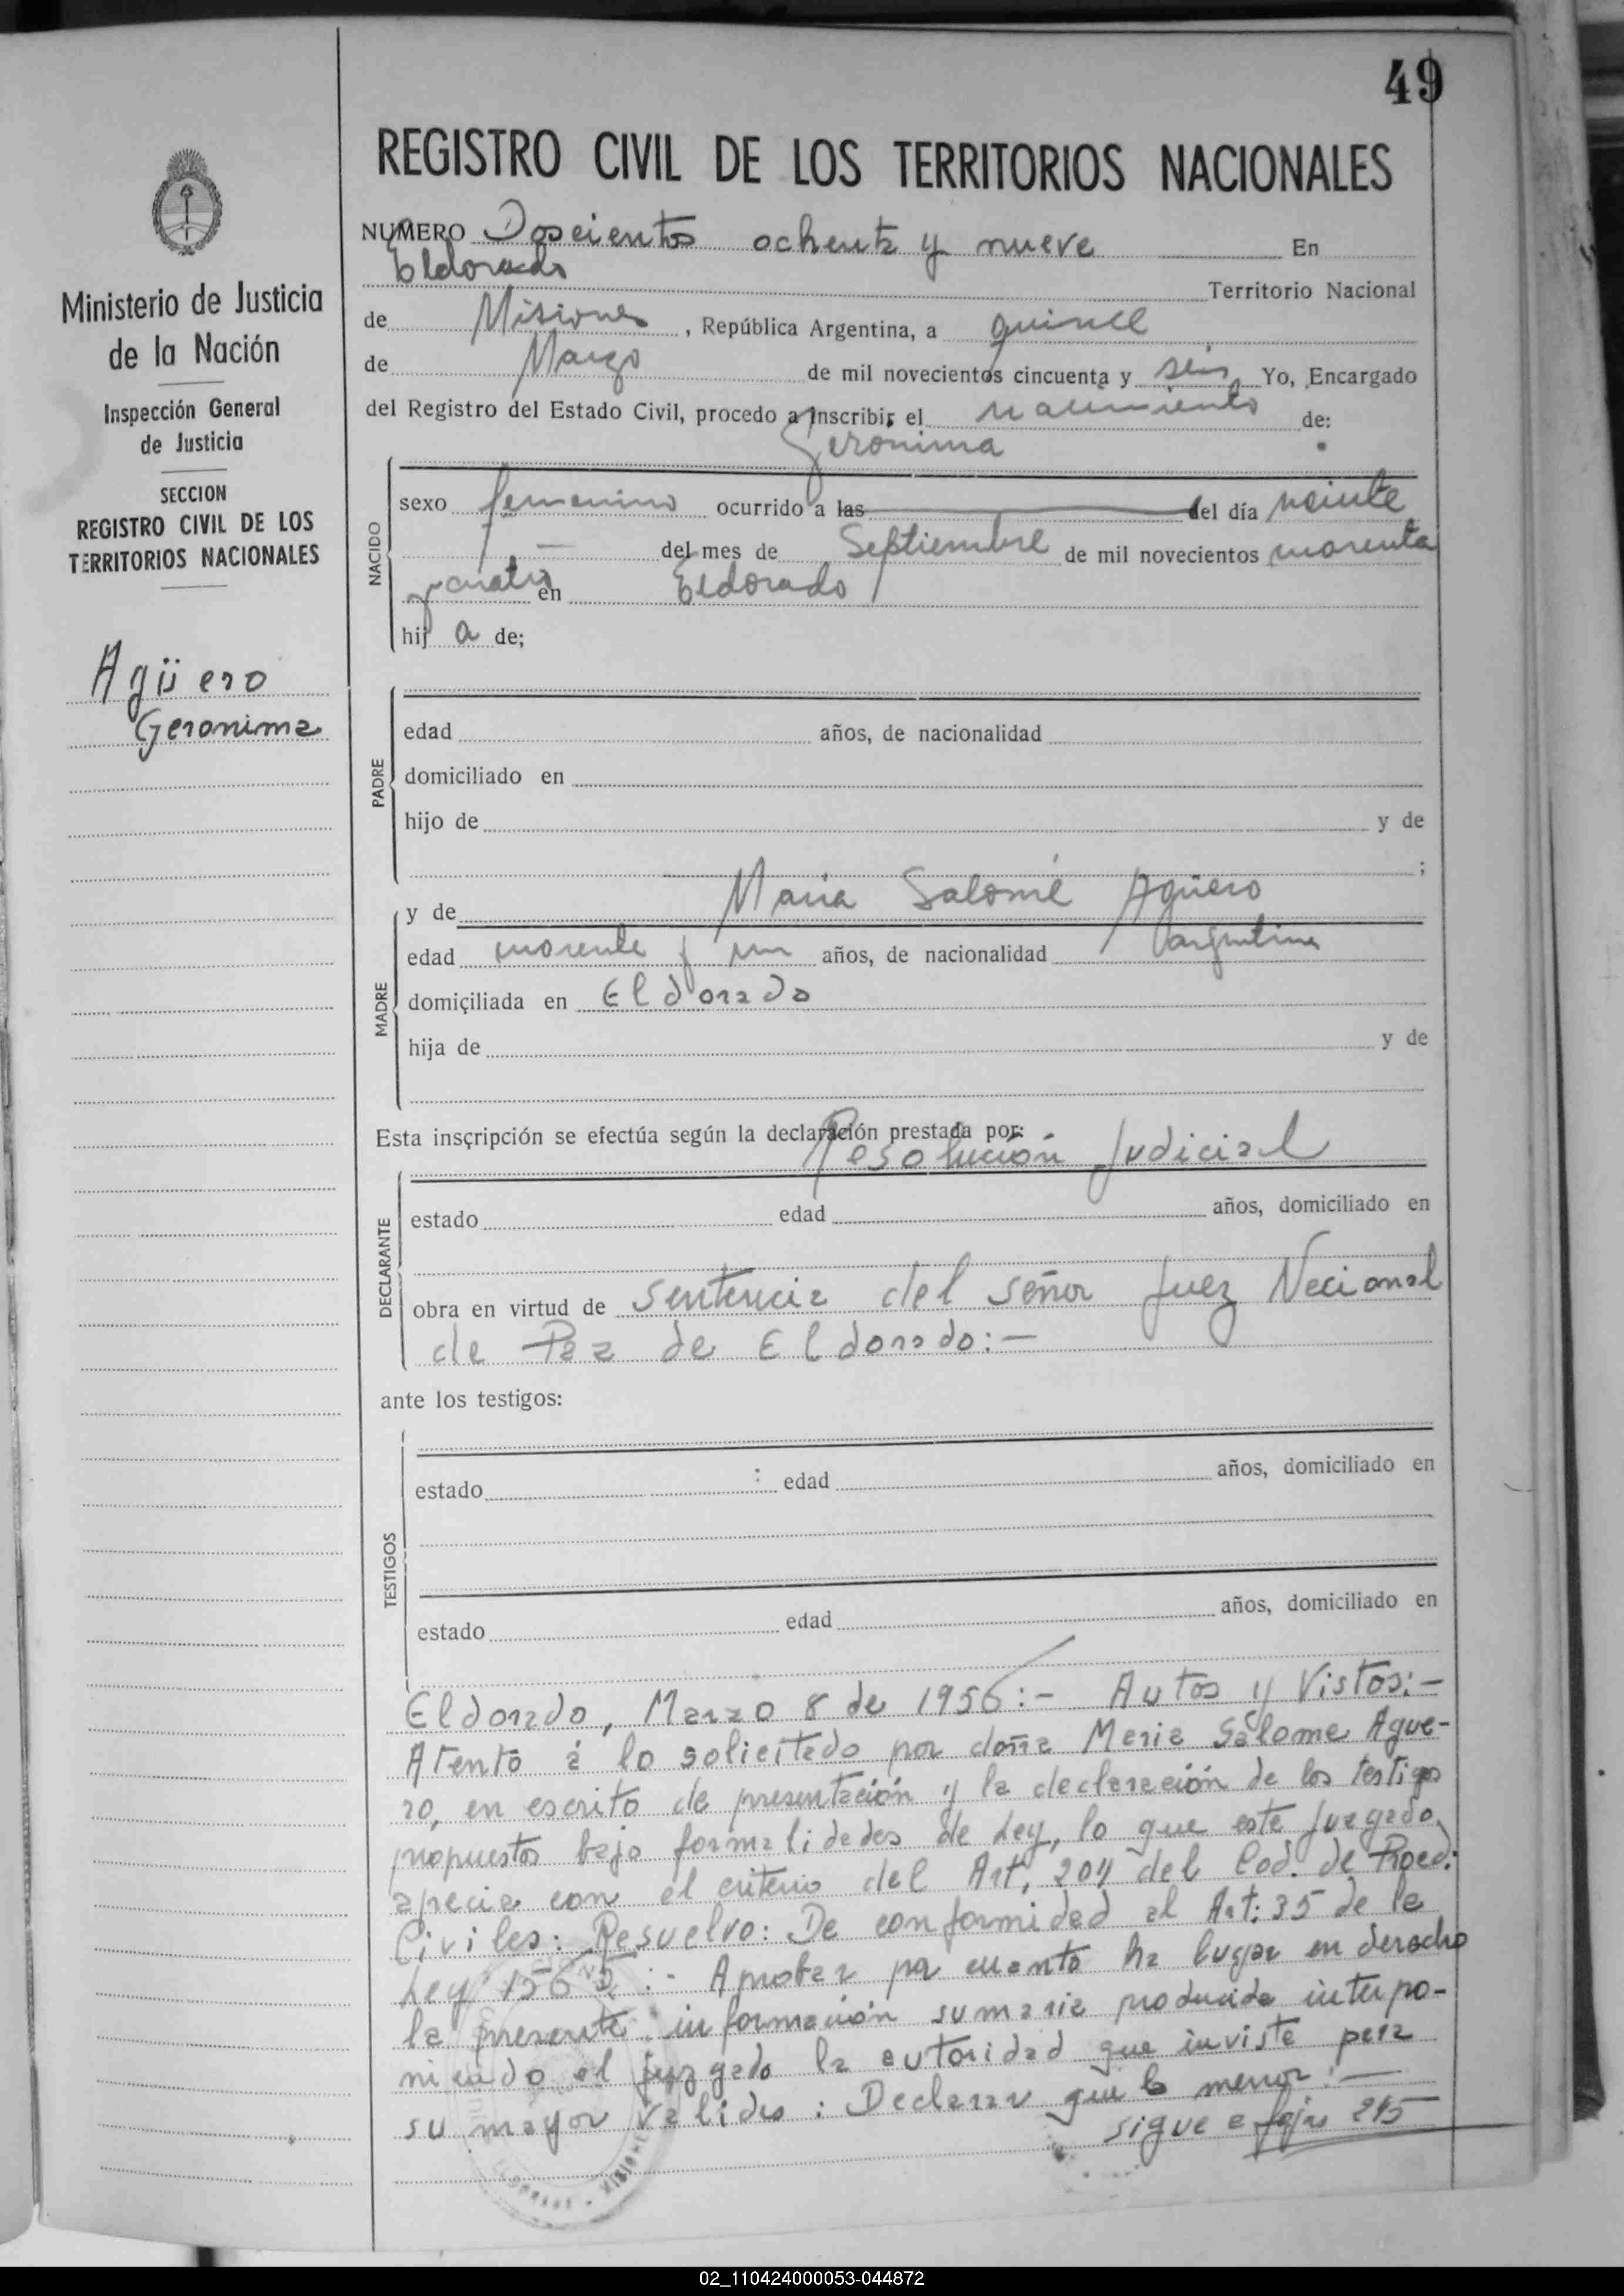 49
REGISTRO CIVIL DE LOS TERRITORIOS NACIONALES
Ministerio de Justicia
de la Nación
Inspección General
de Justicia
SECCION
REGISTRO CIVIL DE LOS
TERRITORIOS NACIONALES
Agüero
Geronima
NUMERO Doscientos ochenta y nueve En
Eldorado
Territorio Nacional
de Misiones, República Argentina, a quince
de Marzo de mil novecientos cincuenta y seis Yo, Encargado
del Registro del Estado Civil, procedo a inscribir el nacimiento de:
Geronima
NACIDO
sexo femenino ocurrido a las del día veinte
del mes de Septiembre de mil novecientos cuarenta
y cuatro en Eldorado
hij a de;
PADRE
edad años, de nacionalidad
domiciliado en
hijo de y de
;
MADRE
y de Maria Salomé Agüero
edad cuarenta y un años, de nacionalidad argentina
domiciliada en Eldorado
hija de y de
Esta inscripción se efectúa según la declaración prestada por:
Resolución Judicial
DECLARANTE
estado edad años, domiciliado en
obra en virtud de sentencia del señor Juez Nacional
de Paz de Eldorado:-
ante los testigos:
TESTIGOS
estado edad años, domiciliado en
estado edad años, domiciliado en
Eldorado, Marzo 8 de 1956:- Autos y Vistos:-
Atento á lo solicitado por doña Maria Salome Ague-
ro, en escrito de presentación y la declaración de los testigos
propuestos bajo formalidades de Ley, lo que este Juzgado,
aprecia con el criterio del Art. 204 del Cod. de Proced:
Civiles: Resuelvo: De conformidad al Art: 35 de la
Ley 1565:- Aprobar por cuanto ha lugar en derecho
la presente información sumaria producida interpo-
niendo el juzgado la autoridad que inviste para
su mayor validez: Declarar que la menor:-
sigue a fojas 245
02_110424000053-044872